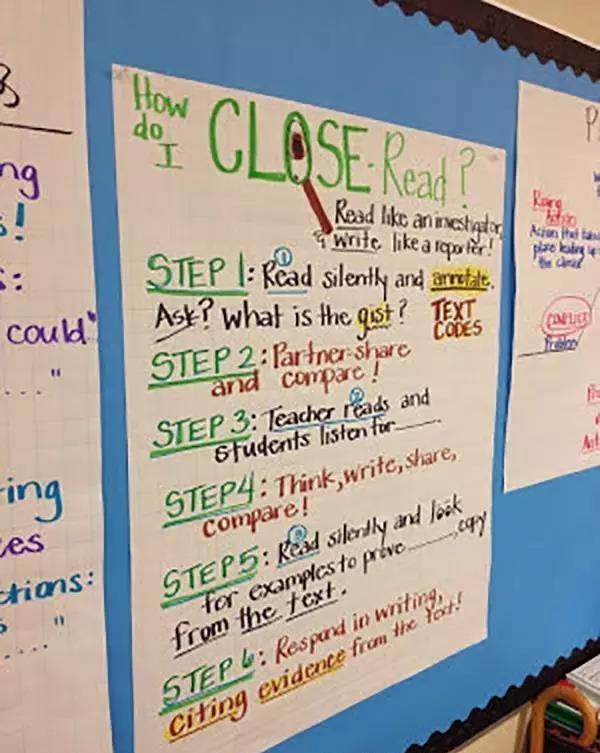 How
do
I
CLOSE-Read?
Read like an investigator
& write like a reporter!
STEP 1: Read silently and annotate.
1
Ask? What is the gist? TEXT
CODES
STEP 2: Partner-share
and compare!
STEP 3: Teacher reads and
2
students listen for____.
STEP 4: Think, write, share,
compare!
STEP 5: Read silently and look
3
for examples to prove____, copy
from the text.
STEP 6: Respond in writing,
citing evidence from the text!
ng
s!
s:
could"
...."
ing
ces
ctions:
s
...."
P
Rising
Action
Action that takes
place leading up
the climax
CONFLICT
Problem